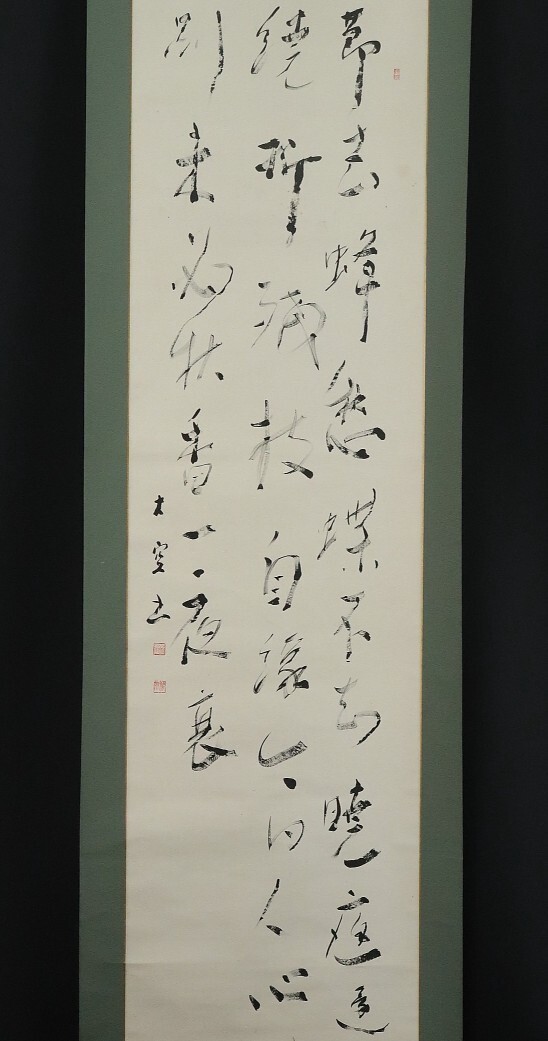 節去蜂愁蝶不知曉庭還
繞折殘枝自緣今日人心
別未必秋香一夜衰